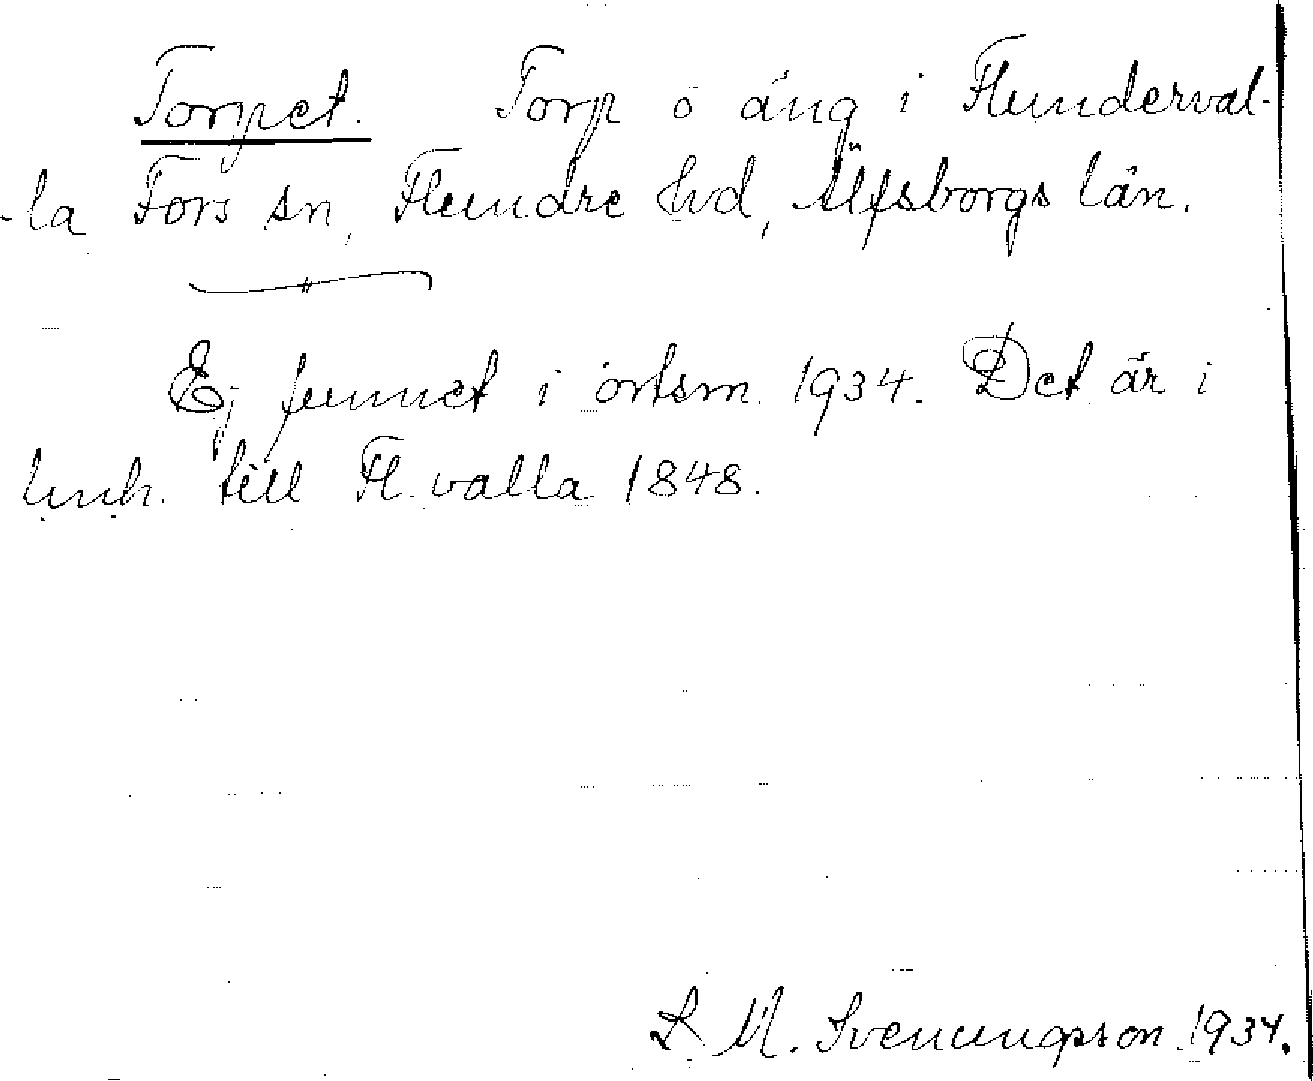 Torpet. Torp o äng i Flunderval-
-la Fors sn, Flundre hd, Älfsborgs län.
Ej funnet i ortsm. 1934. Det är i
till Fl. valla 1848.
L. M. Svenungsson 1934.